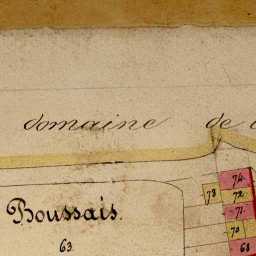 domaine de
74
73 72
71
Boussais.
70
63
68